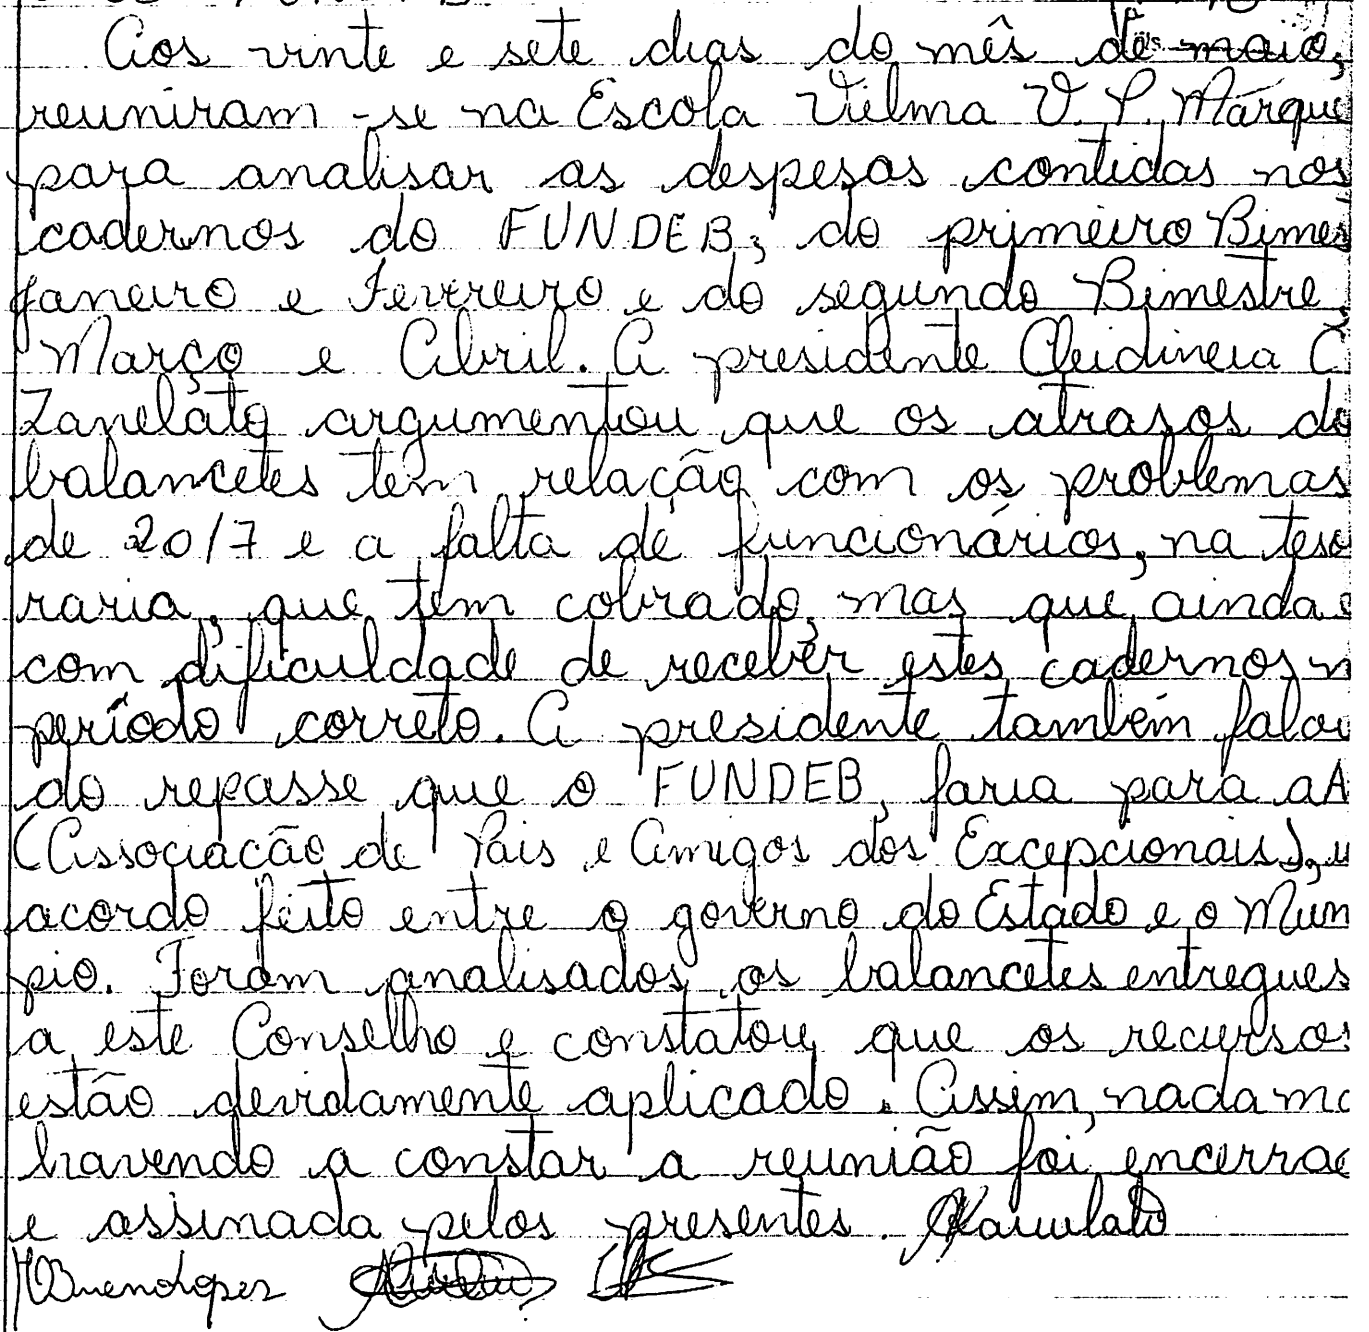 Aos vinte e sete dias do mês de maio,
reuniram-se na Escola Vilma V. P. Márque
para analisar as despesas contidas nos
cadernos do FUNDEB, do primeiro Bimes
Janeiro e Fevereiro e do segundo Bimestre,
Março e Abril. A presidente Cleidineia C
Zanelato argumentou que os atrasos do
balancetes tem relação com os problemas
de 2017 e a falta de funcionários, na teso
raria, que tem cobrado, mas que ainda e
com dificuldade de receber estes cadernos n
período correto. A presidente também falou
do repasse que o FUNDEB, faria para a A
(Associação de Pais e Amigos dos Excepcionais), u
acordo feito entre o governo do Estado e o Mun
pio. Foram analisados os balancetes entregues
a este Conselho e constatou que os recursos
estão devidamente aplicado. Assim, nada ma
havendo a constar a reunião foi encerrad
e assinada pelos presentes.